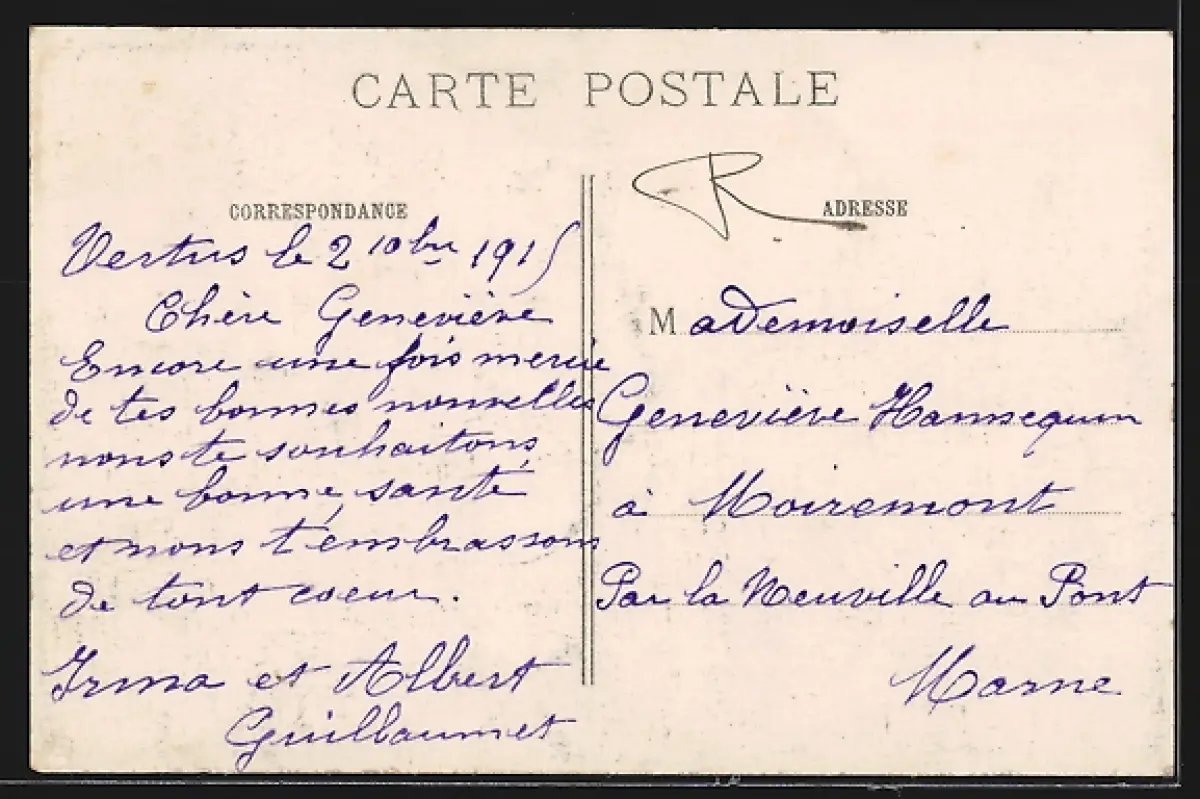 CARTE POSTALE
CORRESPONDANCE
Vertus le 2 10bre 1915
Chère Geneviève
Encore une fois mercie
de tes bonnes nouvelles
nous te souhaitons
une bonne santé
et nous t'embrassons
de tout coeur.
Irma et Albert
Guillaumet
R
ADRESSE
Mademoiselle
Geneviève Hannequin
à Moiremont
Par la Neuville au Pont
Marne